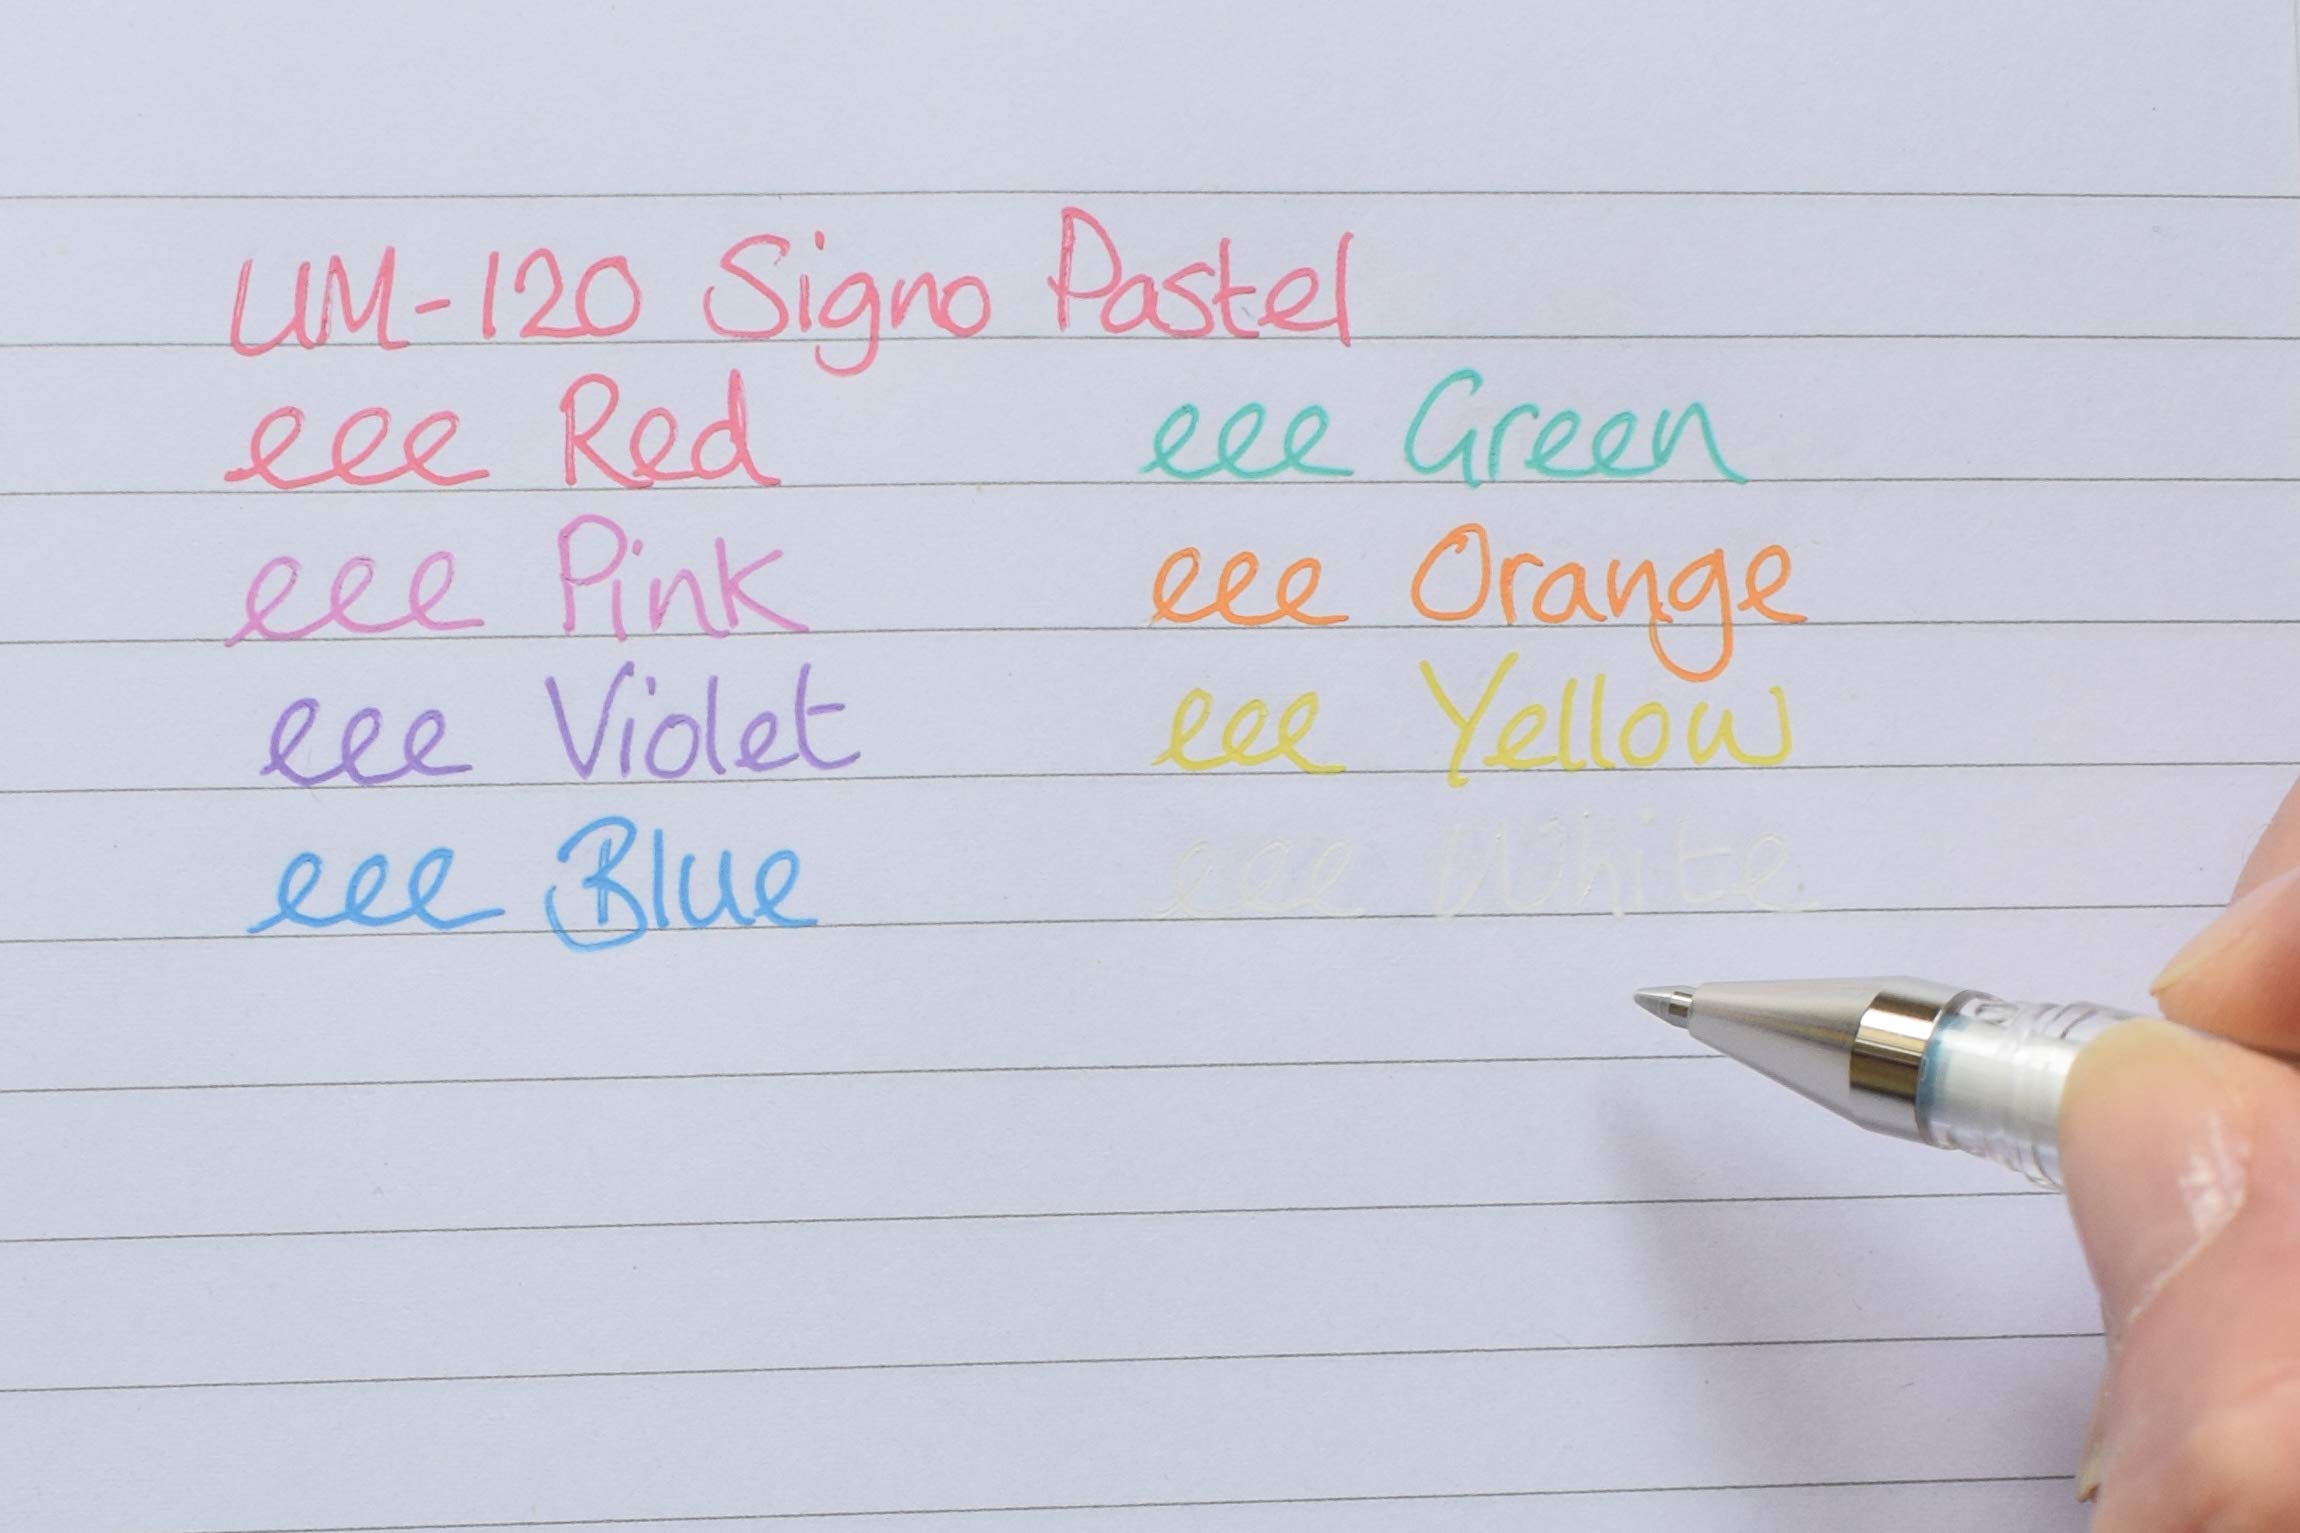 UM-120 Signo Pastel
eee Red eee Green
eee Pink eee Orange
eee Violet eee Yellow
eee Blue eee White